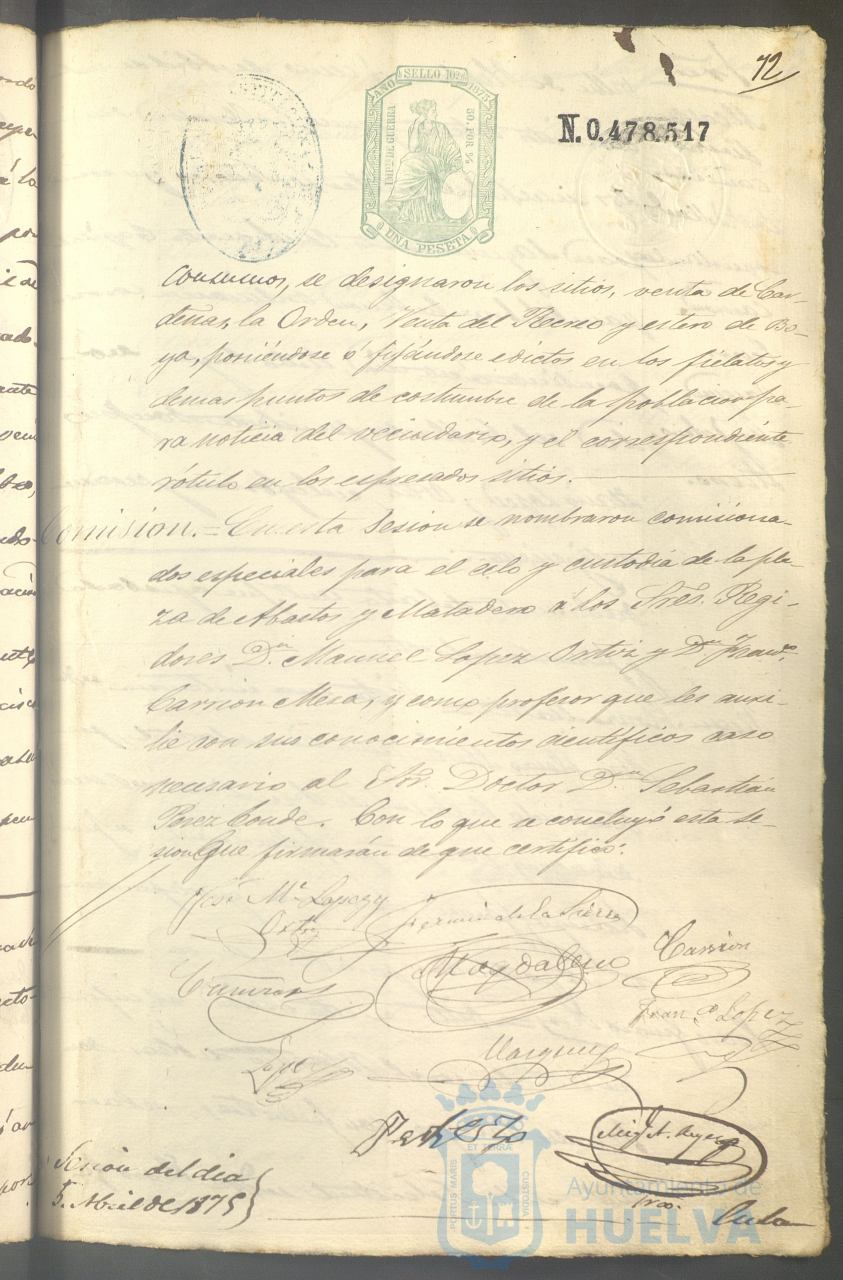 72
AÑO SELLO 10º 1875
IMPTO DE GUERRA
50. POR %
UNA PESETA
N. 0.478.517
consumos, se designaron los sitios, venta de Car-
denas, la Orden, Venta del Recreo y estero de Bo-
ya, poniéndose ó fijándose edictos en los fielatos y
demas puntos de costumbre de la poblacion pa-
ra noticia del vecindario, y el correspondiente
rótulo en los espresados sitios.
Comision.= En esta Sesion se nombraron comisiona-
dos especiales para el celo y custodia de la pla-
za de Abastos y Matadero á los Sres. Regi-
dores Dn. Manuel Lopez Ortiz y Dn. Franco.
Carrion Mesa, y como profesor que les auxi-
lie con sus conocimientos científicos caso
necesario al Sor. Doctor Dn. Sebastián
Perez Conde. Con lo que se concluyó esta se-
sion que firmarán de que certifico.
José Ma. Lopez y
Ortiz
Fermin de la Sierra
Magdaleno
Carrion
Franco Lopez
Lopez
Marquez
Sesion del dia
5. Abril de 1875
En la
PORTUS MARIS
ET TERRÆ
CUSTODIA
Ayuntamiento de
HUELVA